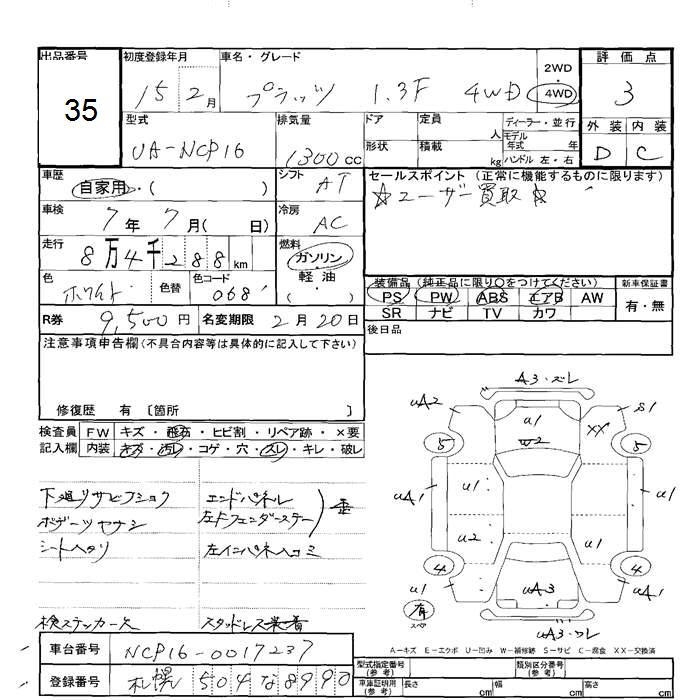 出品番号
35
初度登録年月
15 2月
車名・グレード
プラッツ 1.3F 4WD
2WD
4WD
評価点
3
外装 内装
D C
型式
UA-NCP16
排気量
1300cc
ドア
定員
人
形状
積載
kg
ディーラー・並行
モデル
年式 年
ハンドル 左・右
車歴
自家用・( )
シフト
AT
セールスポイント (正常に機能するものに限ります)
☆ユーザー買取☆
車検
7年7月( 日)
冷房
AC
走行
8万4千288km
燃料
ガソリン
軽・油
( )
色
ホワイト
色替
色コード
068
装備品(純正品に限り○をつけてください)
PS PW ABS エアB AW
SR ナビ TV カワ
新車保証書
有・無
R券 9,500円
名変期限 2月20日
後日品
注意事項申告欄(不具合内容等は具体的に記入して下さい)
修復歴 有 〔箇所 〕
検査員
記入欄
FW キズ・飛石・ヒビ割・リペア跡・×要
内装 キズ・汚レ・コゲ・穴・スレ・キレ・破レ
下廻りサビフショク
ボデーツヤナシ
シートヘタリ
エンドパネル
左Fフェンダーステー
左インパネハコミ
検ステッカー欠
スタッドレス装着
A3・ズレ
uA2
S1
u1
w2
XX
5
5
uA1
u1
u1
u2
u1
uA1
4
4
u1
uA3
uA1
有
スペア
uA3・ワレ
A－キズ E－エクボ U－凹み W－補修跡 S－サビ C－腐食 XX－交換済
車台番号
NCP16-0017237
登録番号
札幌 504 な 8990
型式指定番号
(参考)
類別区分番号
(参考)
車庫証明用
(参考)
長さ cm
幅 cm
高さ cm